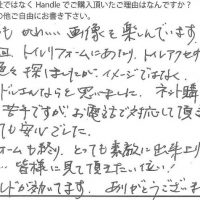 社ではなく Handle でご購入頂いたご理由はなんですか？
の他ご自由にお書き下さい。
も かわいい 画像を 楽しんでいます。
回、トイレリフォームにあたり、トイレアクセサ
色々 探しましたが、イメージではなく、
ドルさんなら と思いました。ネット購
苦手ですが、お電話で対応して頂き
ても安心でした。
ォームも終り、とっても素敵に出来上り
… 皆様に見て頂きたい位！
ルドが効いてます。ありがとうござい